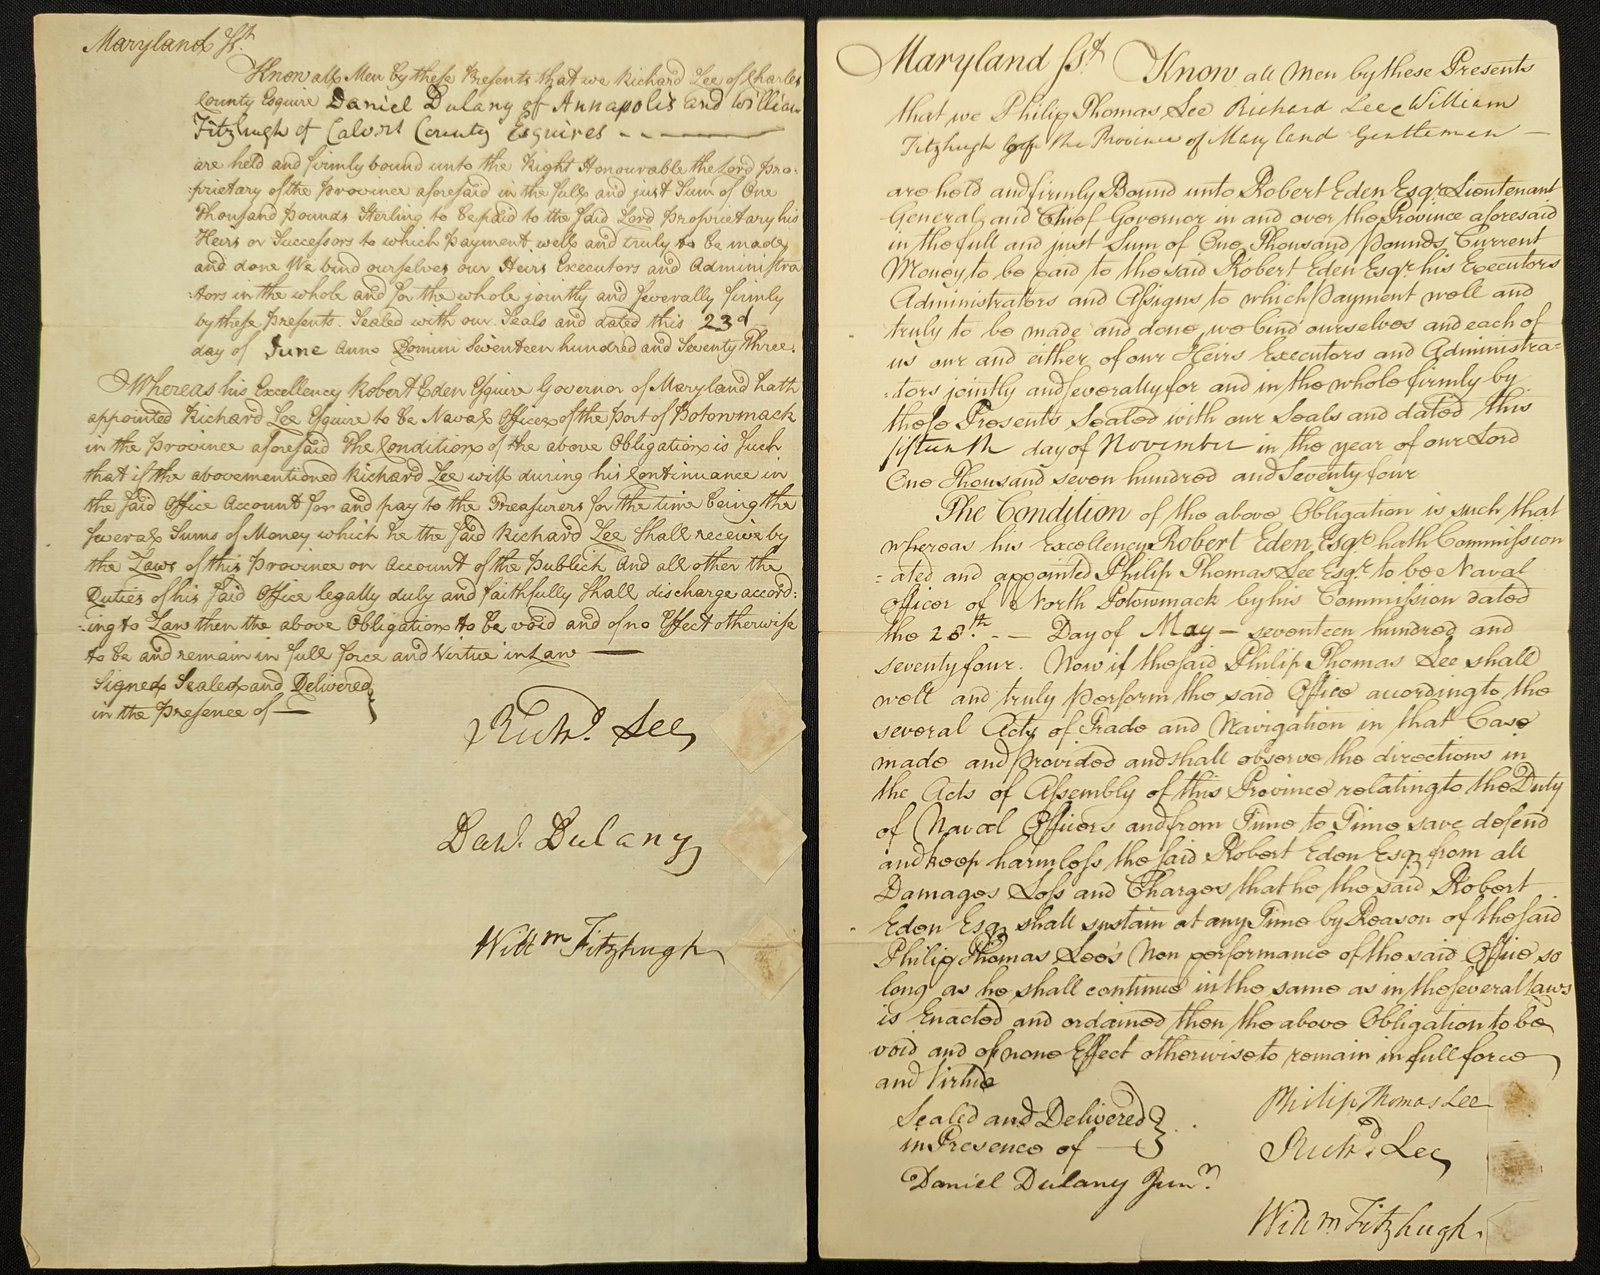 Maryland Sst.
Know all Men by these Presents that we Richard Lee of Charles
County Esquire Daniel Dulany of Annapolis and William
Fitzhugh of Calvert County Esquires
are held and firmly bound unto the Right Honourable the Lord Pro-
prietary of the Province aforesaid in the full and just Sum of One
Thousand pounds Sterling to be paid to the said Lord Proprietary his
Heirs or Successors to which payment well and truly to be made
and done We bind ourselves our Heirs Executors and Administra
tors in the whole and for the whole jointly and severally firmly
by these presents. Sealed with our Seals and dated this 23d
day of June Anno Domini Seventeen hundred and Seventy Three.
Whereas his Excellency Robert Eden Esquire Governor of Maryland hath
appointed Richard Lee Esquire to be Naval Officer of the Port of Potowmack
in the Province aforesaid The Condition of the above Obligation is such
that if the abovementioned Richard Lee will during his Continuance in
the said Office Account for and pay to the Treasurers for the time being the
several Sums of Money which he the said Richard Lee shall receive by
the Laws of this Province on Account of the Publick And all other the
Duties of his said Office legally duly and faithfully shall discharge accord:
:ing to Law then the above Obligation to be void and of no Effect otherwise
to be and remain in full force and Virtue in Law —
Signed Sealed and Delivered
in the presence of —
Richd. Lee
Danl. Dulany
Willm Fitzhugh
Maryland Sst. Know all Men by these Presents
that we Philip Thomas Lee Richard Lee & William
Fitzhugh of the Province of Maryland Gentlemen —
are held and firmly Bound unto Robert Eden Esqr. Lieutenant
General and Chief Governor in and over the Province aforesaid
in the full and just Sum of One Thousand Pounds Current
Money to be paid to the said Robert Eden Esqr. his Executors
Administrators and Assigns, to which Payment well and
truly to be made and done, we bind ourselves and each of
us our and either of our Heirs Executors and Administra=
tors jointly and severally for and in the whole firmly by
these Presents Sealed with our Seals and dated this
fifteenth day of November in the year of our Lord
One Thousand seven hundred and Seventy four
The Condition of the above Obligation is such that
whereas his Excellency Robert Eden Esqr. hath Commission
=ated and appointed Philip Thomas Lee Esqr. to be Naval
Officer of North Potowmack by his Commission dated
the 28th. — Day of May — seventeen hundred and
seventy four. Now if the said Philip Thomas Lee shall
well and truly perform the said Office according to the
several Acts of Trade and Navigation in that Case
made and Provided and shall observe the directions in
the Acts of Assembly of this Province relating to the Duty
of Naval Officers and from Time to Time save defend
and keep harmless the said Robert Eden Esqr from all
Damages Loss and Charges that he the said Robert
Eden Esqr shall sustain at any Time by Reason of the said
Philip Thomas Lee's Non performance of the said Office so
long as he shall continue in the same as in the several Laws
is Enacted and ordained then the above Obligation to be
void and of none Effect otherwise to remain in full force
and Virtue
Sealed and Delivered
in Presence of —
Philip Thomas Lee
Richd. Lee
Daniel Dulany Junr.
Willm Fitzhugh.